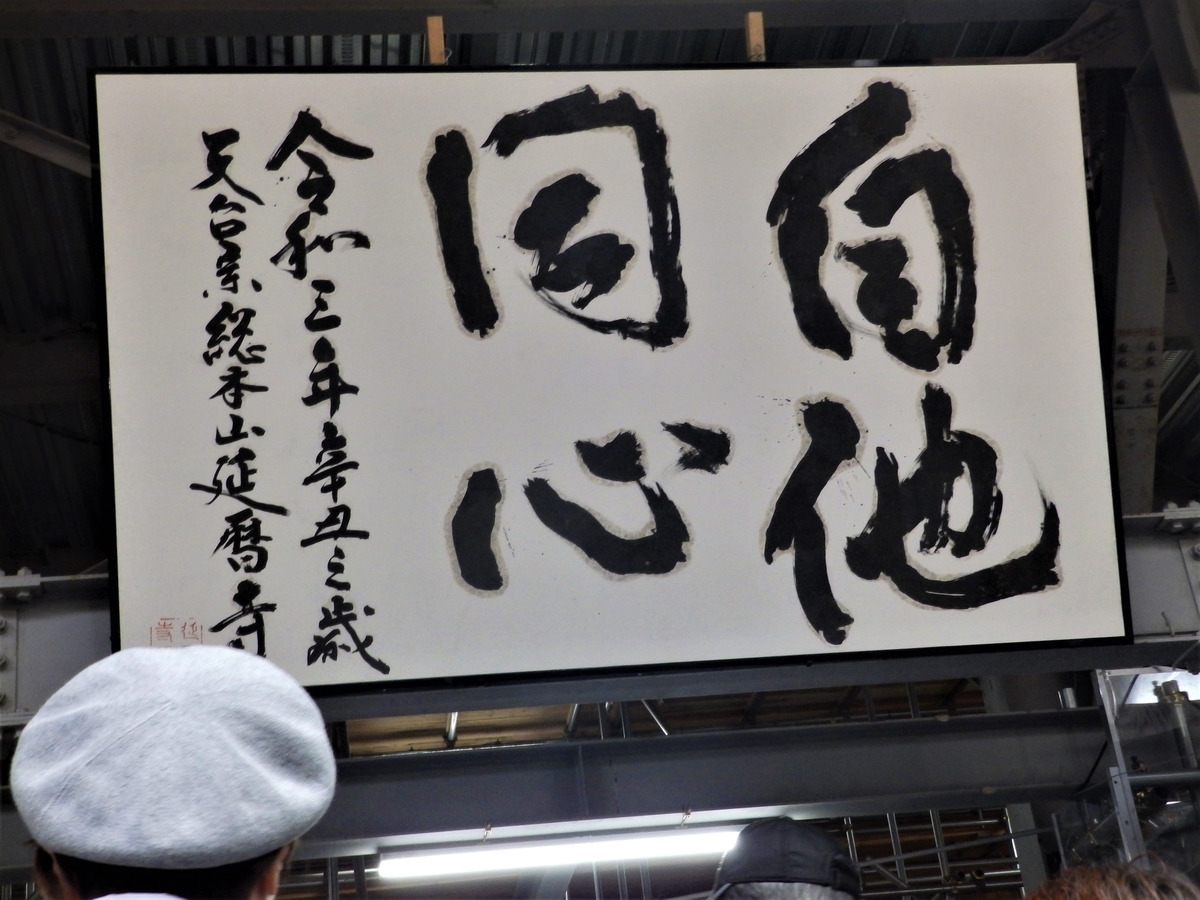 自他
同心
令和三年辛丑之歳
天台宗総本山延暦寺